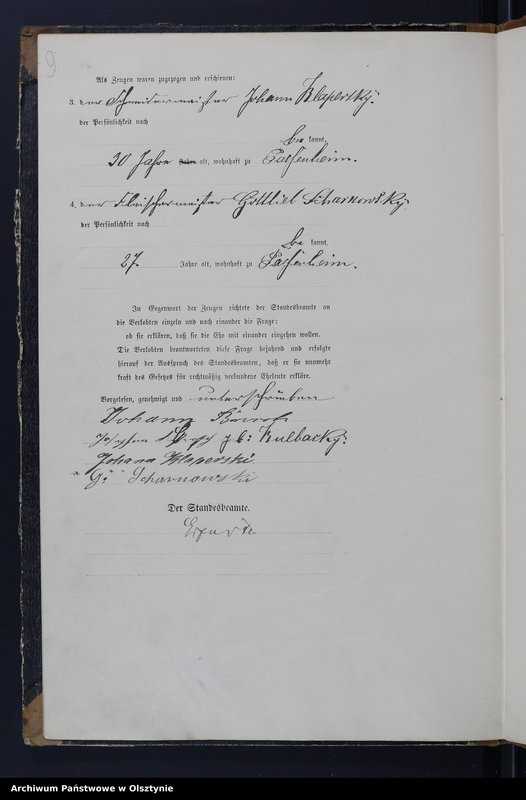 9
Als Zeugen waren zugezogen und erschienen:
3. der Schneidermeister Johann Klapersky.
der Persönlichkeit nach
be kannt,
30 Jahre Jahre alt, wohnhaft zu Passenheim.
4. der Fleischermeister Gottlieb Scharnowsky.
der Persönlichkeit nach
be kannt,
27. Jahre alt, wohnhaft zu Passenheim.
In Gegenwart der Zeugen richtete der Standesbeamte an
die Verlobten einzeln und nach einander die Frage:
ob sie erklären, daß sie die Ehe mit einander eingehen wollen.
Die Verlobten beantworteten diese Frage bejahend und erfolgte
hierauf der Ausspruch des Standesbeamten, daß er sie nunmehr
kraft des Gesetzes für rechtmäßig verbundene Eheleute erkläre.
Vorgelesen, genehmigt und unterschrieben
Johann
geb: Kulbacky:
Johann Klaperski
G. Scharnowski
Der Standesbeamte.
Archiwum Państwowe w Olsztynie